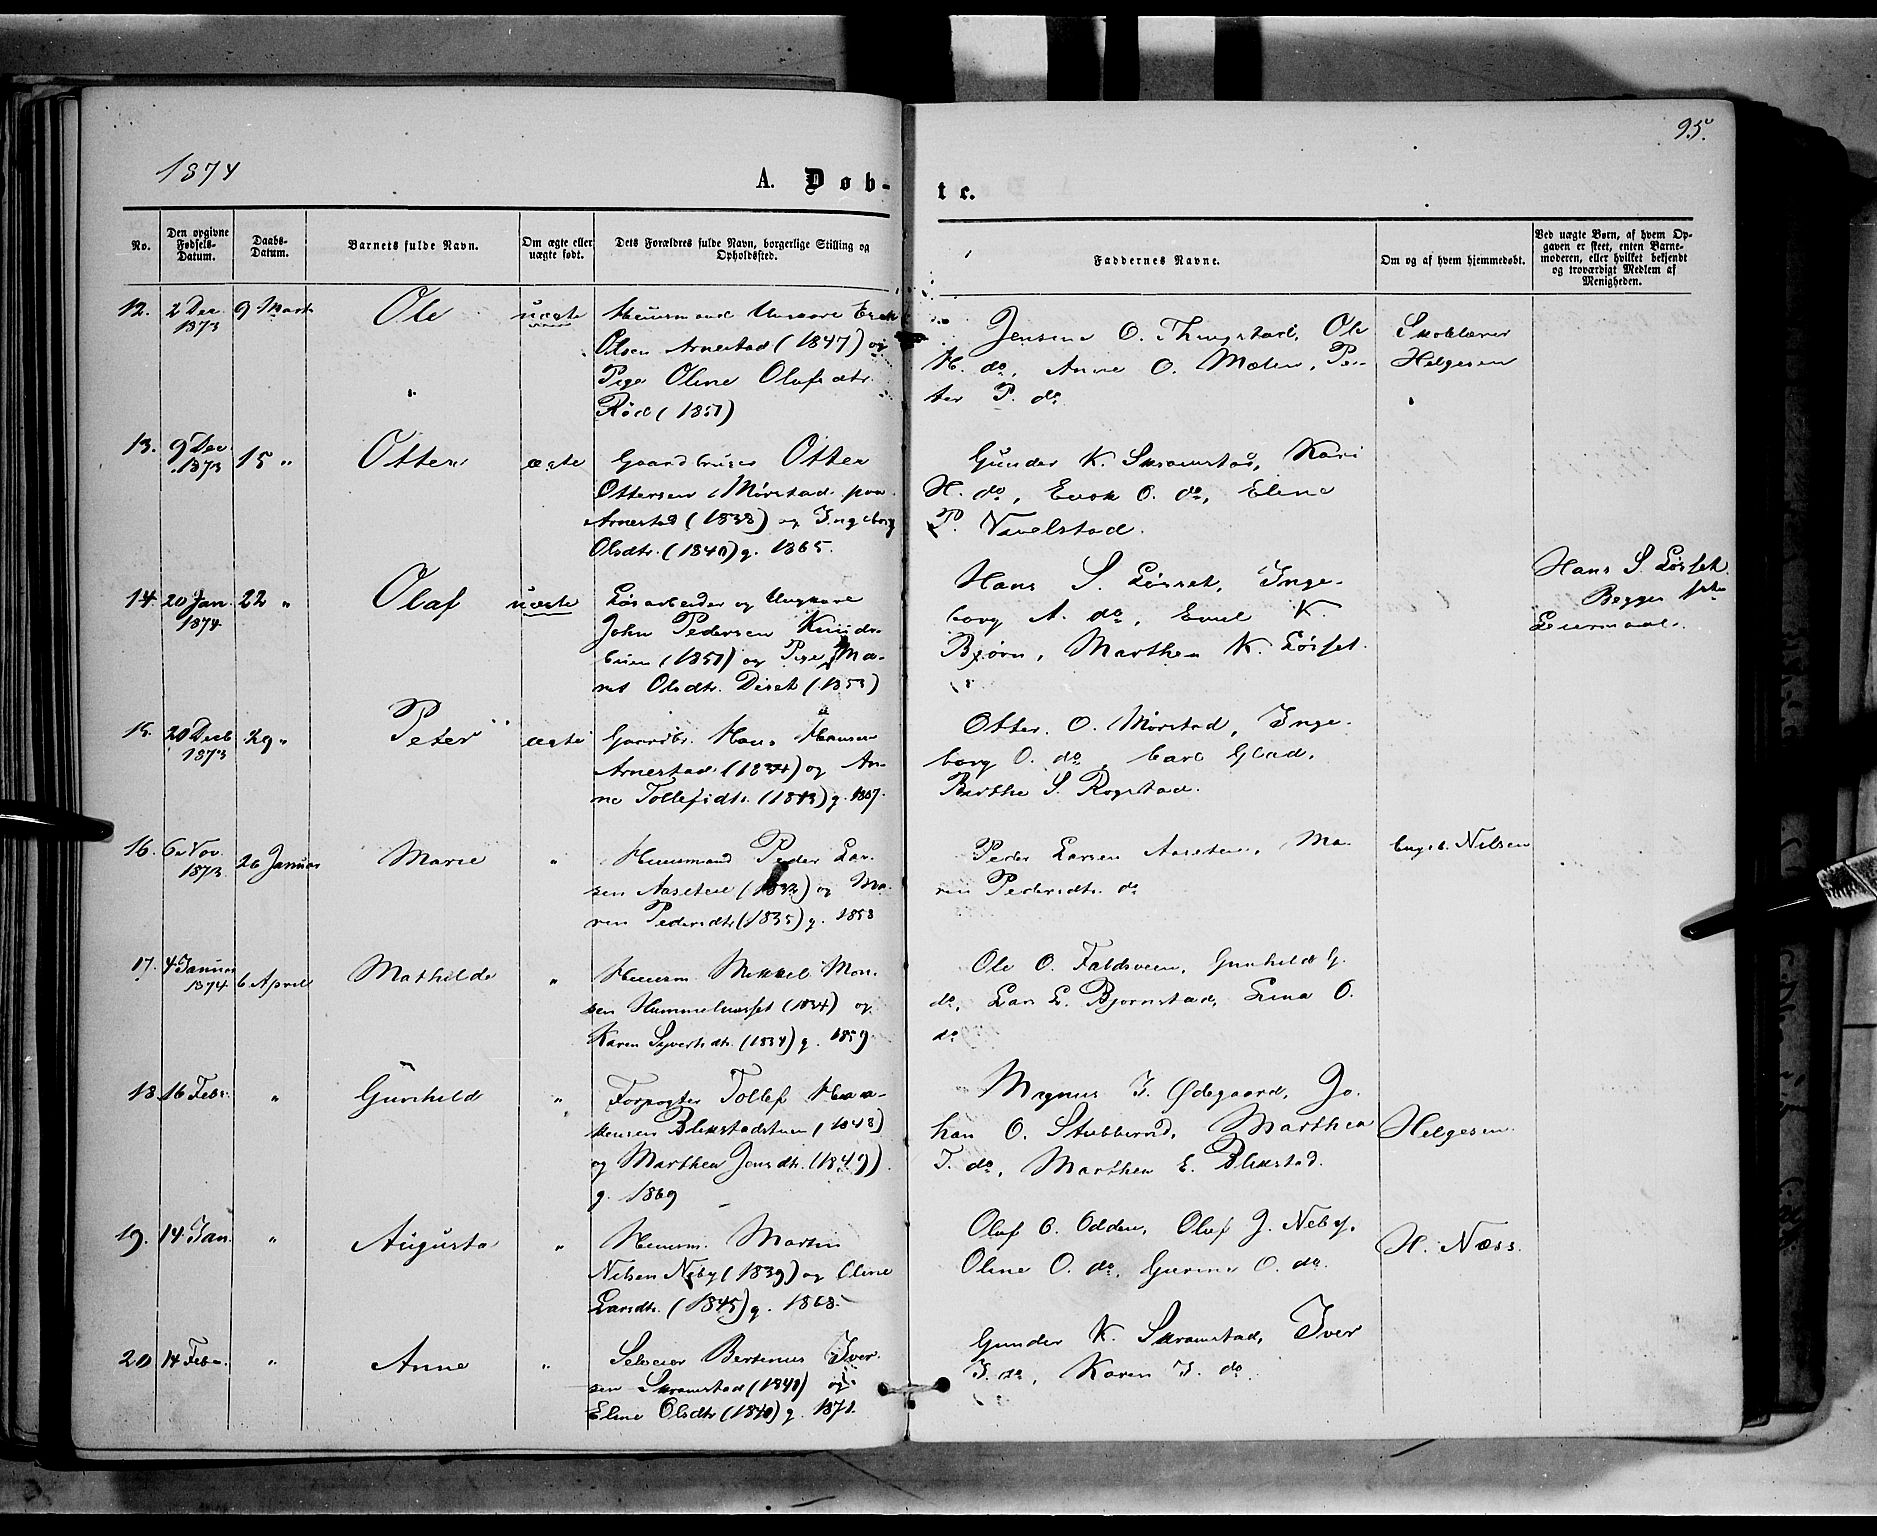 95.
1874
A. Døb-
te.
No.
Den opgivne Fødsels-Datum.
Daabs-Datum.
Barnets fulde Navn.
Om ægte eller uægte født.
Dets Forældres fulde Navn, borgerlige Stilling og Opholdssted.
Faddernes Navne.
Om og af hvem hjemmedøbt.
Ved uægte Børn, af hvem Opgaven er skeet, enten Barnemoderen, eller hvilket bekjendt og troværdigt Medlem af Menigheden.
12. 2 Dec. 1873 9 Marts Ole uægte
Huusmand Ungkarl
Olsen Arnestad (1847) og
Pige Oline Olafsdtr.
Rød (1851)
Jensine O. Thingstad, Ole
H. do, Anne O. Mælen, Pe-
ter P. do
Skolelærer
Helgesen
13. 9 Dec. 1873 15 " Otter ægte
Gaardbruger Otter
Ottersen Mørstad paa
Arnestad (1838) og Ingeborg
Olsdtr. (1840) g. 1865.
Gunder K. Skramstad, Kari
H. do, O. do, Eline
P. Navelstad.
14. 20 Jan. 1874 22 " Olaf uægte
Løsarbeider og Ungkarl
John Pedersen Knuds-
(1851) og Pige Ma-
ret Olsdtr. Diset (1853)
Hans S. Løsset, Inge-
borg A. do, Emil K.
Bjørn, Marthea K. Løsset.
Hans S. Løsset.
Begges 1ste
Leiermaal.
15. 20 Decb 1873 29 " Peter ægte
Gaardbr. Hans Hansen
Arnestad (1834) og An-
ne Tollefsdtr. (1843) g. 1867.
Otter O. Mørstad, Inge-
borg O. do, Carl Glad,
Berthe S. Rogstad.
16. 6 Nov. 1873 26 Januar Marie "
Huusmand Peder Lar-
sen Aaseteie (1832) og Ma-
ren Pedersdtr. (1835) g. 1853
Peder Larsen Aaseteie, Ma-
ren Pedersdtr. do
Engeb. Nilsen
17. 4 Januar 1874 6 April Mathilde "
Huusm. Mikkel Mon-
sen (1834) og
Karen Syvertsdtr. (1834) g. 1859.
Ole O. Faldsveen, Gunhild G.
do, Lars L. Bjørnstad, Lina O.
do
18. 16 Febr. " Gunhild "
Forpagter Tollef Haa-
kensen Blikstadstuen (1848)
og Marthea Jensdtr. (1849)
g. 1869
Magnus I. Ødegaard, Jo-
han O. Stubberud, Marthea
T. do, Marthea E. Blikstad.
Helgesen.
19. 14 Jan. " Augusta "
Huusm. Martin
Nilsen Neby (1839) og Oline
Larsdtr. (1845) g. 1868.
Olaf O. Odden, Olaf J. Neby,
Oline O. do, Gurine O. do.
H. Næss.
20 14 Febr. " Anne "
Selveier Bertinus Iver-
sen Skramstad (1848) og
Eline Olsdtr. (1840) g. 1871.
Gunder K. Skramstad, Iver
I. do, Karen I. do